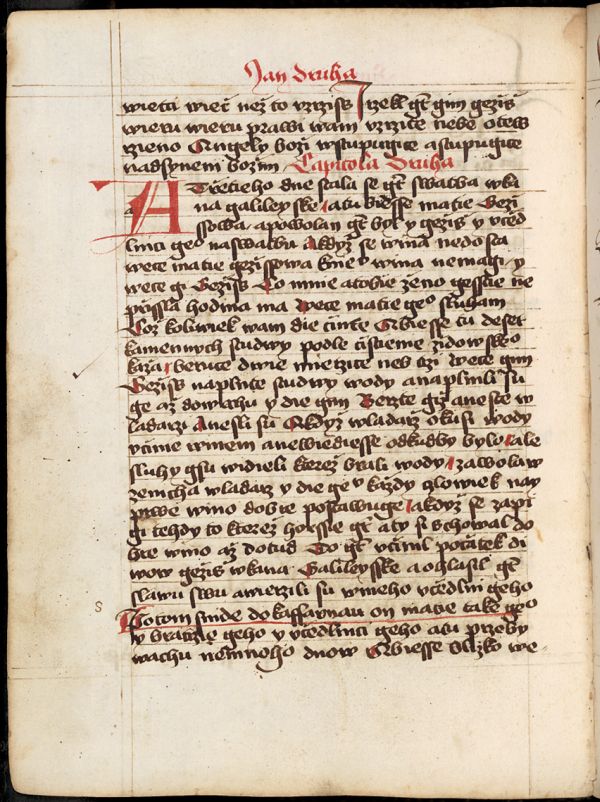 Jan Druha
wietci wieć než to vzrziss J rzekl gt gim geziss
wieru wieru prawi wam vzrzite nebe otew
rzieno Angely bozi wstupugite a stupugite
nad synem bozim Capitola Druha
A Trzetieho dne stala se gt swatba w ka
na galileyske a tu biesse matie Gezi
ssowa a powolan gt byl y geziss y vcied
lnici geo na swatbu A kdyz se wina nedosta
wece matie gezissowa k nie v wina nemagi y
wece gi Geziss Co mnie a tobie zeno gesstie ne
prissla hodina ma Wece matie geo sluham
Coz koliwiek wam die cinte A biesse tu deset
kamennych studwy podle cistienie zidowskeo
kaza berucie dwie mierzitcie neb trzi Wece gim
Geziss naplnte studwy wody a naplnili su
ge az do wrchu y die gim Berzte giz a neste w
ladarzi A nesli su A kdyz wladarz okusi wody
vcinie winem a newiediesse odkudby bylo ale
sluhy gsu widieli kterez brali wody zawola w
zenicha wladarz y die ge v kazdy czlowiek nay
prwe wino dobre postawuge a kdyz se zapi
gi tehdy to kterez horssie gt a ty si schowal do
bre wino az dotud To gt vcinil pocatek di
wow geziss w kana Galileyske a oglasil gt
slawu swu a wierzili su w nieho vcedlnici geho
s
Potom snide do kaffarnau on matie take geo
y bratrzie geho y vcedlnici geho a tu przeby
wachu nemnoho dnow A biesse blizko we-